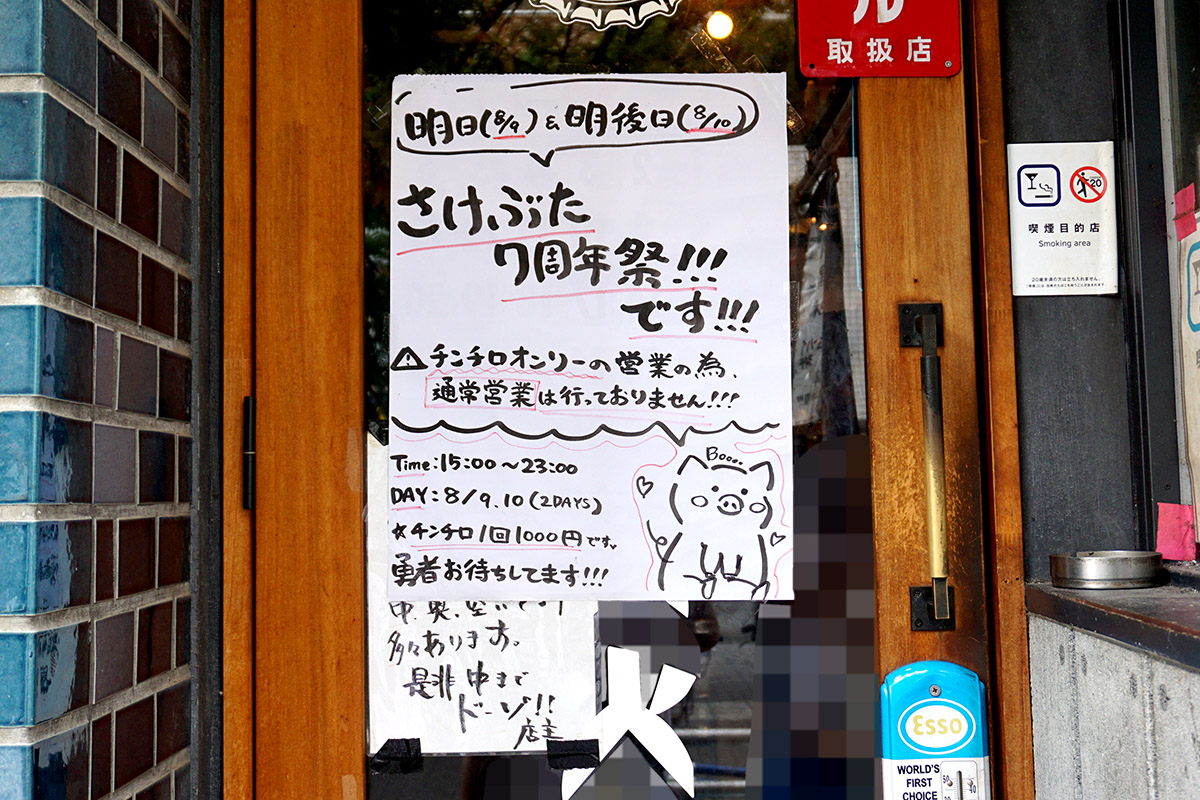 ル
取扱店
明日(8/9)&明後日(8/10)
さけぶた
7周年祭!!!
です!!!
⚠チンチロオンリーの営業の為、
通常営業は行っておりません!!!
Time:15:00〜23:00
DAY:8/9.10(2DAYS)
☆チンチロ1回1000円です。
勇者お待ちしてます!!!
Booo...
多々あります。
是非中まで
ドーゾ!!
店主
20
喫煙目的店
Smoking area
20歳未満の方は立ち入れません。
Esso
WORLD'S
FIRST
CHOICE
50
40